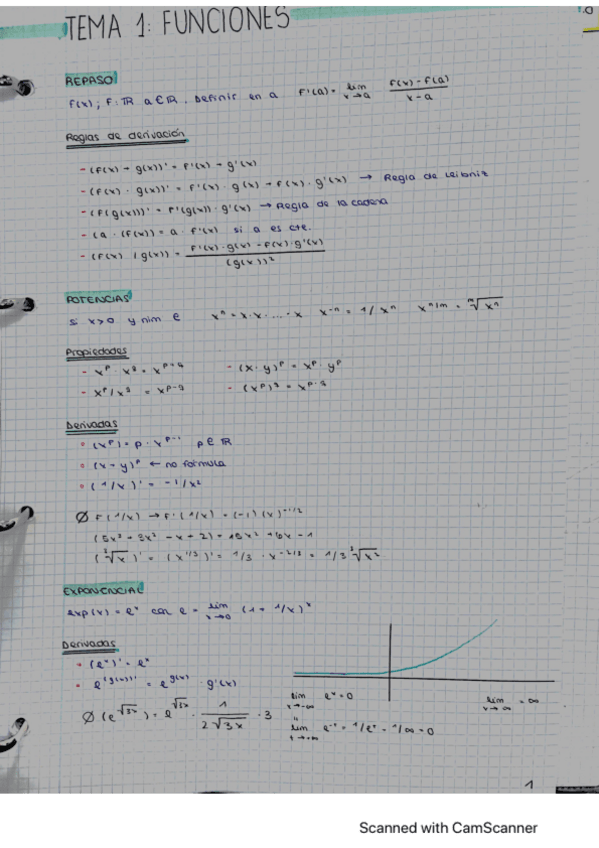 TEMA 1: FUNCIONES
REPASO
f(x); F: ℝ a∈ℝ. Definir en a F'(a) = lim x→a (f(x) - f(a)) / (x - a)
Reglas de derivación
- (f(x) + g(x))' = f'(x) + g'(x)
- (f(x) · g(x))' = f'(x) · g(x) + f(x) · g'(x) → Regla de Leibniz
- (f(g(x)))' = f'(g(x)) · g'(x) → Regla de la cadena
- (a · (f(x)) = a · f'(x) si a es cte.
- (f(x) / g(x)) = (f'(x) · g(x) - f(x) · g'(x)) / (g(x))²
POTENCIAS
si x>0 y n,m ∈ xⁿ = x·x·...·x x⁻ⁿ = 1/xⁿ x^(n/m) = ᵐ√xⁿ
Propiedades
- x^p · x^q = x^(p+q) - (x·y)^p = x^p · y^p
- x^p / x^q = x^(p-q) - (x^p)^q = x^(p·q)
Derivadas
• (x^p) = p · x^(p-1) p∈ℝ
• (x+y)^p ← no formula
• (1/x)' = -1/x²
Ø F(1/x) → F'(1/x) = (-1)(x)
(5x³ + 3x² - x + 2) = 15x² + 6x - 1
(³√x)' = (x^(1/3))' = 1/3 · x^(-2/3) = 1/3 ³√x²
EXPONENCIAL
exp(x) = eˣ con e = lim x→0 (1 + 1/x)ˣ
Derivadas
• (eˣ)' = eˣ
• e^(g(x))' = e^g(x) · g'(x)
Ø (e^√3x) = e^√3x · 1 / (2√3x) · 3
lim x→-∞ eˣ = 0 lim x→∞ = ∞
lim = 0
1
Scanned with CamScanner